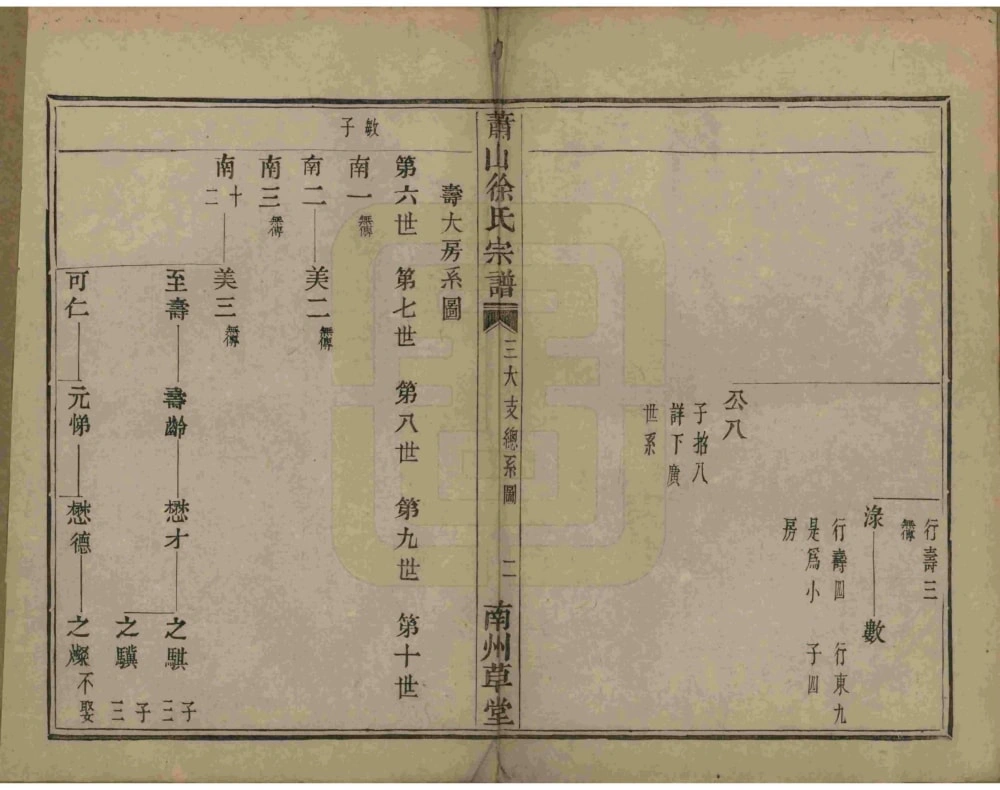 行壽三
無傳
淥 數
行壽四 行東九
是爲小 子四
房
公八
子招八
詳下廣
世系
蕭山徐氏宗譜 三大支總系圖 二 南州草堂
壽大房系圖
第六世 第七世 第八世 第九世 第十世
敏子
南一 無傳
南二 美二 無傳
南三 無傳
南十二 美三 無傳
至壽 壽齡 懋才 之騏 子三
之驥 子三
可仁 元悌 懋德 之燦 不娶